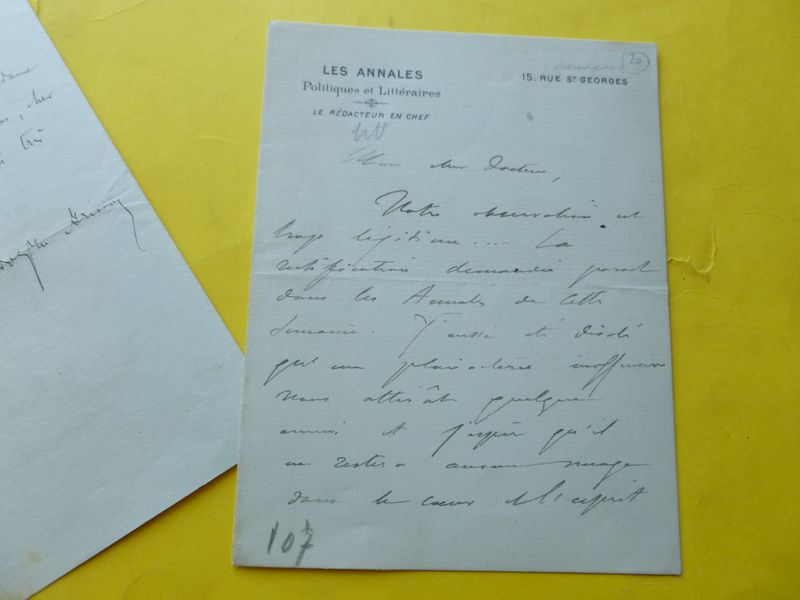 dame
, cher
très
Adolphe Brisson
20
LES ANNALES
Politiques et Littéraires
LE RÉDACTEUR EN CHEF
15, RUE ST GEORGES
Mon cher Docteur,
Votre observation est
trop légitime.... La
rectification demandée paraît
dans les Annales de cette
Semaine. J'eusse été désolé
qu'une plaisanterie inoffensive
vous attirât quelque
ennui et j'espère qu'il
ne restera aucun nuage
dans le cœur et l'esprit
107